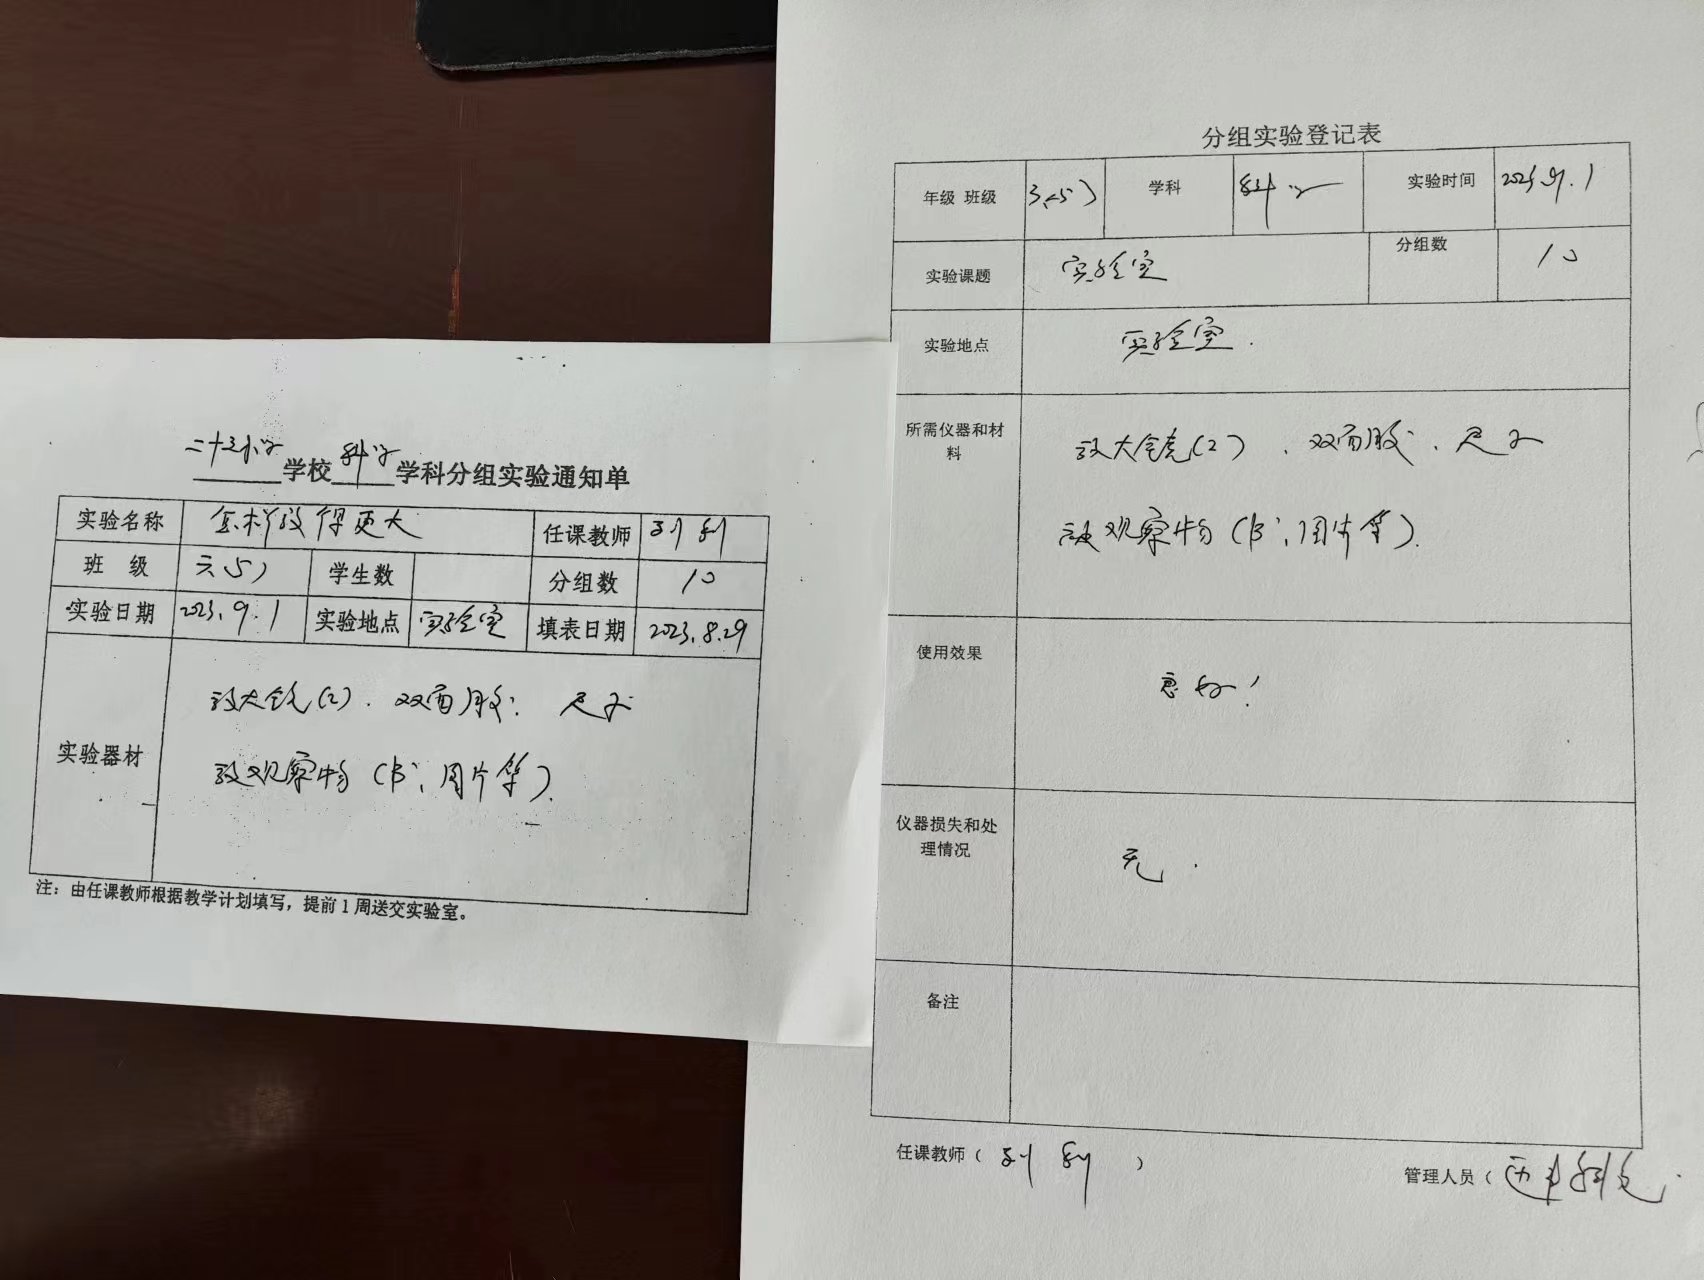 二十三小学学校科学学科分组实验通知单
实验名称 怎样放得更大 任课教师
班 级 六(5) 学生数 分组数 10
实验日期 2023.9.1 实验地点 实验室 填表日期 2023.8.29
实验器材
放大镜(2). 双面胶. 尺子
被观察物(书、图片等).
注：由任课教师根据教学计划填写，提前1周送交实验室。
分组实验登记表
年级 班级 学科 科学 实验时间 2023.9.1
实验课题 实验室 分组数 10
实验地点 实验室.
所需仪器和材料
放大镜(2)、双面胶、尺子
被观察物(书、图片等).
使用效果
良好！
仪器损失和处理情况
无.
备注
任课教师（ ）
管理人员（